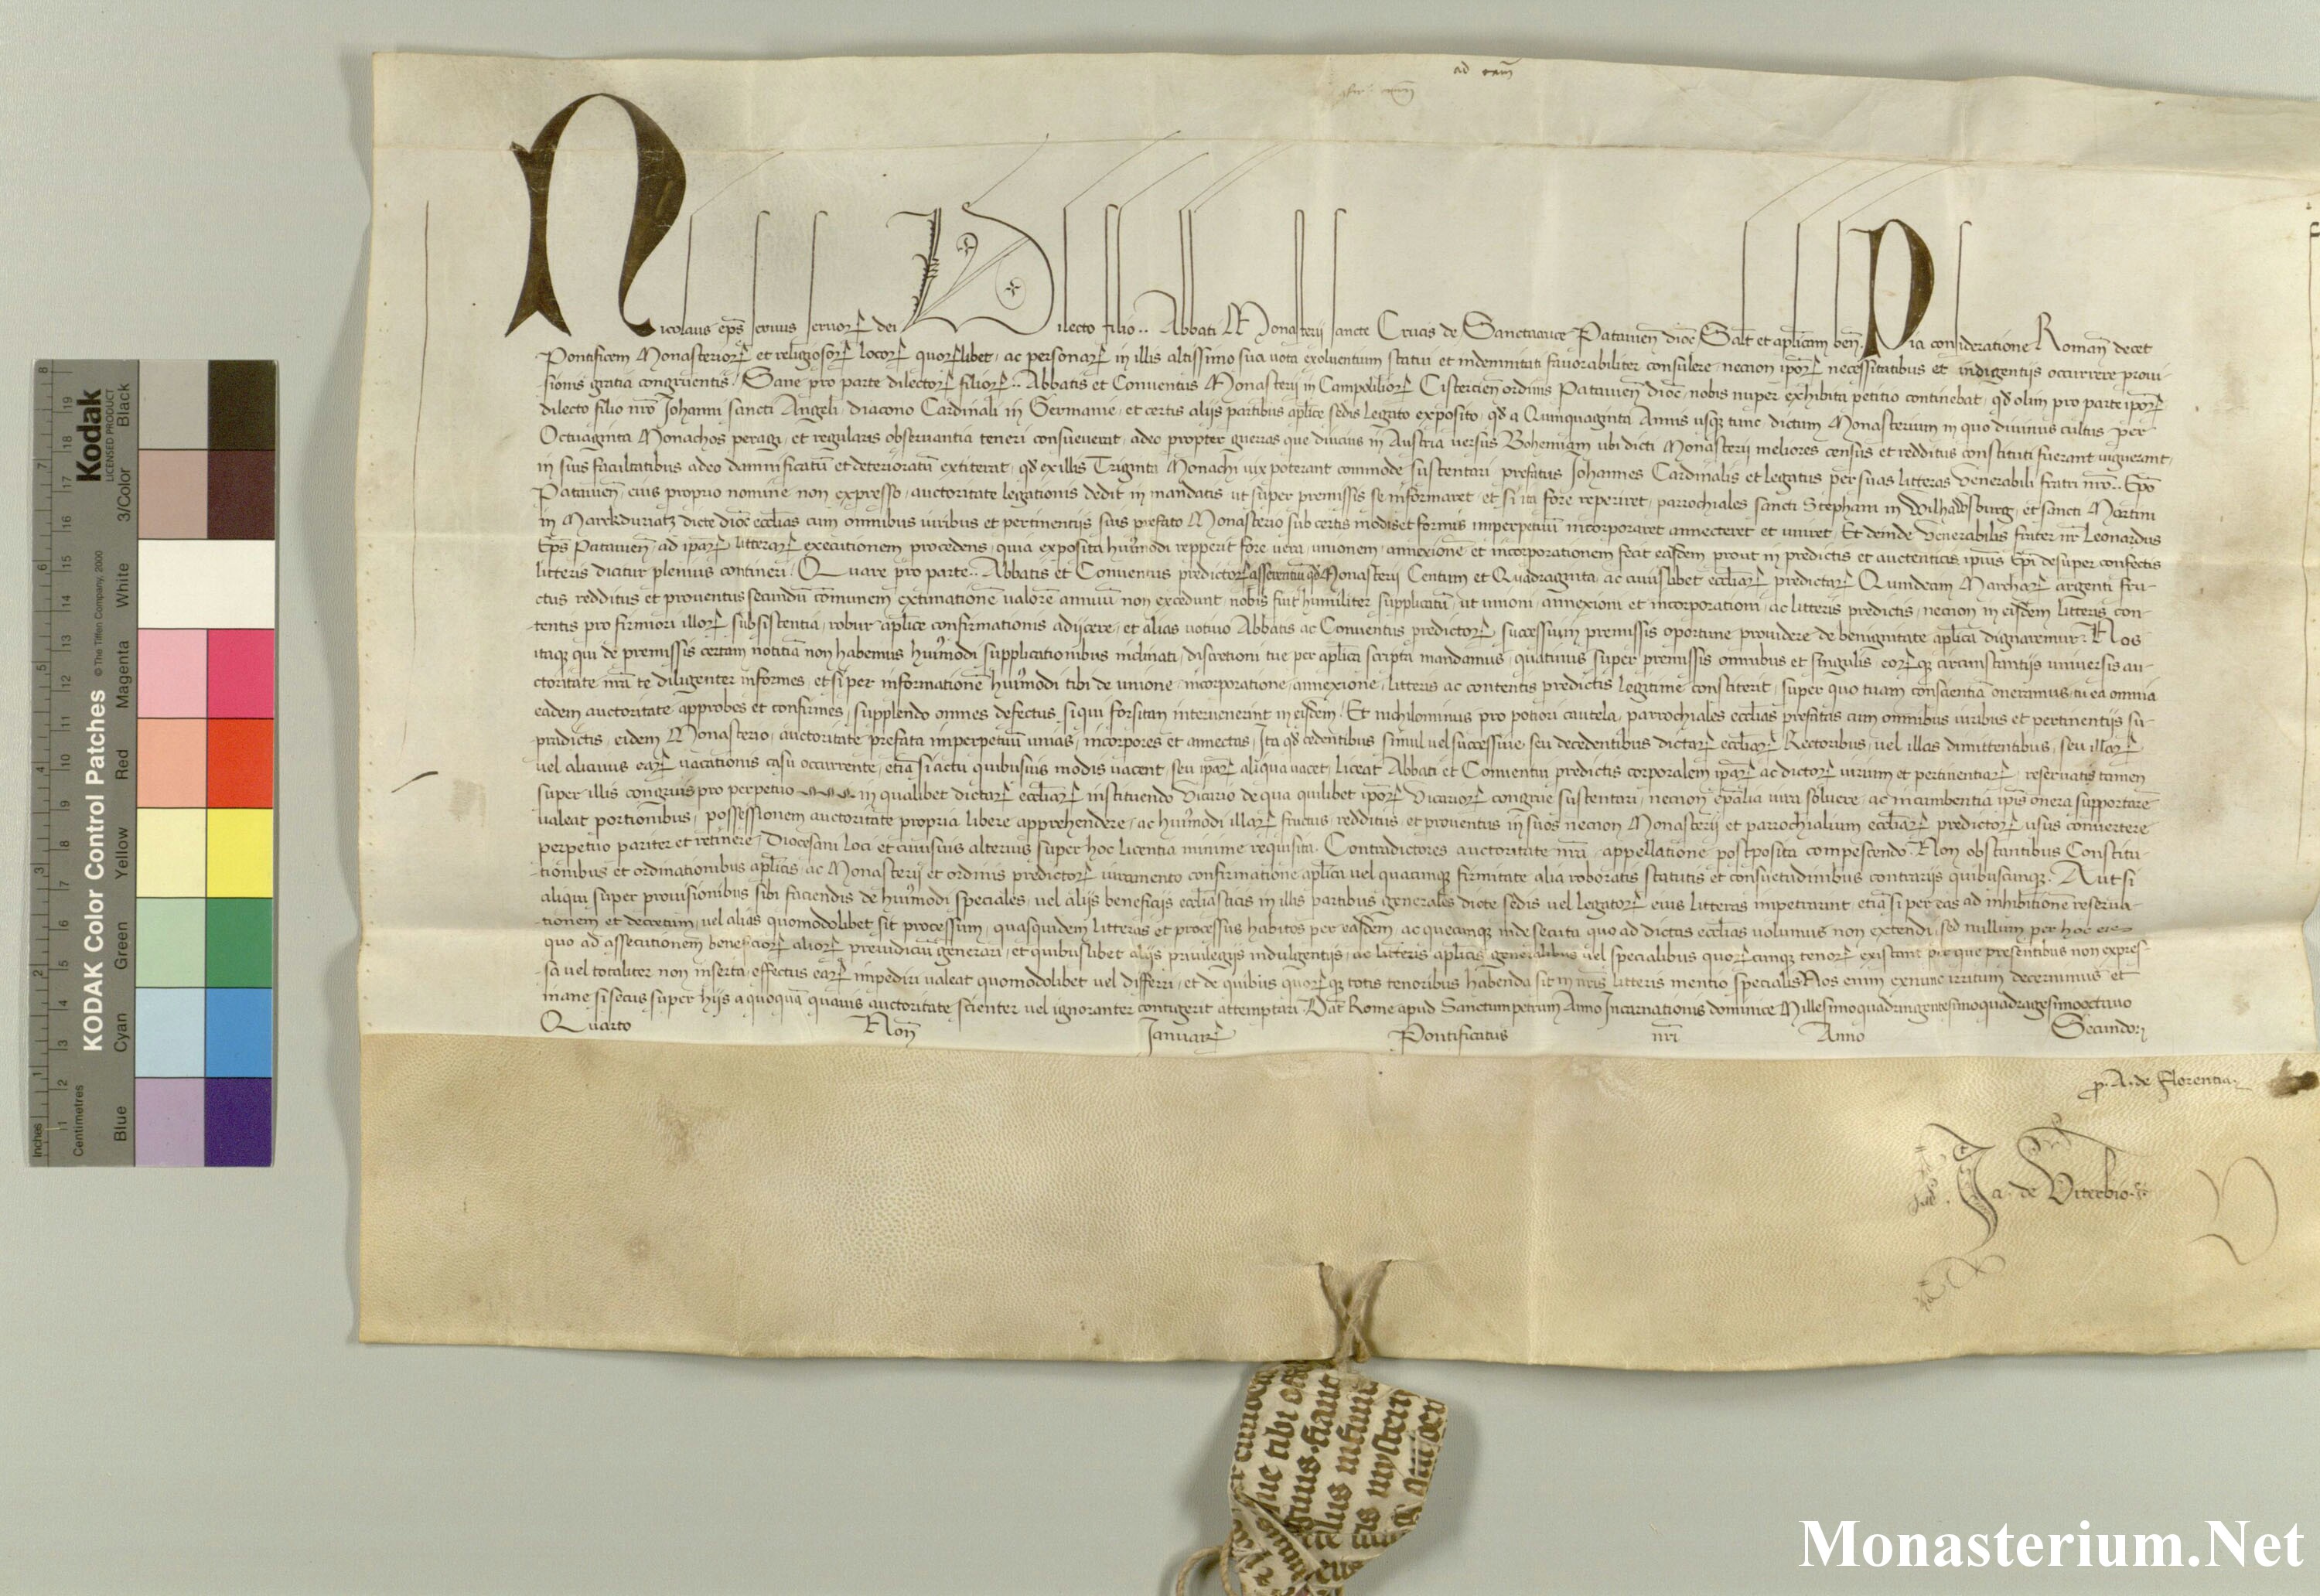 ad eam̄
Nicolaus ep̄s servus servoꝝ dei Dilecto filio .. Abbati Monasterii sancte Crucis de Sanctacruce Patavien̄ dioc̄ Salt̄ et aplicam ben̄. Pia consideratione Roman̄ decet
Pontificem Monasterioꝝ et religiosoꝝ locoꝝ quoꝝlibet, ac personaꝝ in illis altissimo sua vota exolventium statui et indemnitati favorabiliter consulere, necnon ipoꝝ necessitatibus et indigentijs occurrere provi-
sionis gratia congruentis. Sane pro parte dilectoꝝ filioꝝ .. Abbatis et Conventus Monasterij in Campolilioꝝ Cistercien̄ ordinis Patavien̄ dioc̄, nobis nuper exhibita petitio continebat, qd̄ olim pro parte ipoꝝ
dilecto filio nr̄o Johanni sancti Angeli, diacono Cardinali in Germanie, et certis alijs partibus aplice sedis Legato exposito, qd̄ a Quinquaginta Annis usqꝫ tunc, dictum Monasterium in quo divinus cultus per
Octuaginta Monachos peragi, et regularis observantia teneri consueverat, adeo propter guerras que diucius in Austria versus Bohemiam ubi dicti Monasterij meliores census et redditus constituti fuerant viguerant,
in suis facultatibus adeo damnificatū et deterioratū extiterat, qd̄ ex illis Triginta Monachi vix poterant commode sustentari prefatus Johannes Cardinalis et legatus per suas litteras Venerabili fratri nr̄o .. Ep̄o
Patavien̄, eius proprio nomine non expresso, auctoritate legationis dedit in mandatis ut super premissis se informaret et si ita fore reperiret, parrochiales sancti Stephani in Wilhalmsburg, et sancti Martini
in Marckduriatz dicte dioc̄ eccliās cum omnibus iuribus et pertinentijs suis prefato Monasterio sub certis modis et formis imperpetuū incorporaret annecteret et uniret. Et deinde Venerabilis frater nr̄ Leonardus
Ep̄s Patavien̄, ad ipaꝝ litteraꝝ executionem procedens, quia exposita huīmodi repperit fore vera, unionem, annexionē et incorporationem fecit easdem prout in predictis et auctenticis ipius Ep̄i desuper confectis
litteris dicitur plenius contineri. Quare pro parte .. Abbatis et Conventus predictoꝝ asserentiū qd̄ Monasterij Centum et Quadraginta, ac cuiuslibet eccliāꝝ predictaꝝ Quindecim Marchaꝝ argenti fru-
ctus redditus et proventus secundū cōmunem extimationē valorē annuū non excedunt, nobis fuit humiliter supplicatū, ut unioni, annexioni et incorporationi, ac litteris predictis, necnon in eisdem litteris con-
tentis pro firmiori illoꝝ subsistentia, robur aplice confirmationis adijcere, et alias votivo Abbatis ac Conventus predictoꝝ successiuī premissis oportune providere de benignitate aplica dignaremur. Nos
itaqꝫ qui de premissis certam notitiā non habemus huīmodi supplicationibus inclinati, discretioni tue per aplica scripta mandamus, quatinus super premissis omnibus et singulis, eoꝝqꝫ circumstantijs universis au-
ctoritate nr̄a te diligenter informes, et si per informationē huīmodi tibi de unione, incorporatione, annexione, litteris ac contentis predictis legitime constiterit, super quo tuam conscientiā oneramus, tu ea omnia
eadem auctoritate approbes et confirmes, supplendo omnes defectus, siqui forsitan intervenerint in eisdem. Et nichilominus pro potiori cautela, parrochiales eccliās prefatas cum omnibus iuribus et pertinentijs su-
pradictis, eidem Monasterio, auctoritate prefata imperpetuū unias, incorpores et annectas, Ita qd̄ cedentibus simul vel successive, seu decedentibus dictaꝝ eccliāꝝ Rectoribus, vel illas dimittentibus, seu illaꝝ
vel alicuius eaꝝ vacationis casu occurrente, etiā si actu quibusvis modis vacent, seu ipaꝝ aliqua vacet, liceat Abbati et Conventui predictis corporalem ipaꝝ ac dictoꝝ iurium et pertinentiaꝝ, reservatis tamen
super illis congruis pro perpetuo in qualibet dictaꝝ eccliāꝝ instituendo Vicario de qua quilibet ipoꝝ Vicarioꝝ congrue sustentari, necnon ep̄alia iura solvere, ac incumbentia ipis onera supportare
valeat portionibus, possessionem auctoritate propria libere apprehendere, ac huīmodi illaꝝ fructus, redditus et proventus in suos necnon Monasterij et parrochialium eccliāꝝ predictoꝝ usus convertere
perpetuo pariter et retinere, Diocesani loci et cuiusvis alterius super hoc licentia minime requisita. Contradictores auctoritate nr̄a, appellatione postposita compescendo. Non obstantibus Constitu-
tionibus et ordinationibus aplicis, ac Monasterij et ordinis predictoꝝ iuramento confirmatione aplica vel quacunqꝫ firmitate alia roboratis statutis et consuetudinibus contrarijs quibuscunqꝫ. Aut si
aliqui super provisionibus sibi faciendis de huīmodi speciales, vel alijs beneficijs eccliasticis in illis partibus generales dicte sedis vel legatoꝝ eius litteras impetrarint, etiā si per eas ad inhibitionē reserva-
tionem et decretum, vel alias quomodolibet sit processum, quasquidem litteras et processus habitos per easdem, ac quecunqꝫ inde secuta quo ad dictas eccliās volumus non extendi, sed nullum per hoc eis
quo ad assecutionem beneficioꝝ alioꝝ preiudiciū generari, et quibuslibet alijs privilegijs indulgentijs, ac litteris aplicis generalibus vel specialibus quoꝝcunqꝫ tenoꝝ existant per que presentibus non expres-
sa vel totaliter non inserta, effectus eaꝝ impediri valeat quomodolibet vel differri, et de quibus quoꝝqꝫ totis tenoribus habenda sit in nr̄is litteris mentio specialis. Nos enim exnunc irritum decernimus et
inane, si secus super hijs a quoquā quavis auctoritate scienter vel ignoranter contigerit attemptari. Dat̄ Rome apud Sanctumpetrum Anno Incarnationis dominice Millesimoquadringentesimoquadragesimooctavo
Quarto Non̄ Januaꝝ Pontificatus nr̄i Anno Secundo
p. A. de Florentia
Ja. de Viterbio
KODAK Color Control Patches © The Tiffen Company, 2000
Kodak
LICENSED PRODUCT
Inches
Centimetres
Blue Cyan Green Yellow Red Magenta White 3/Color Black
Monasterium.Net